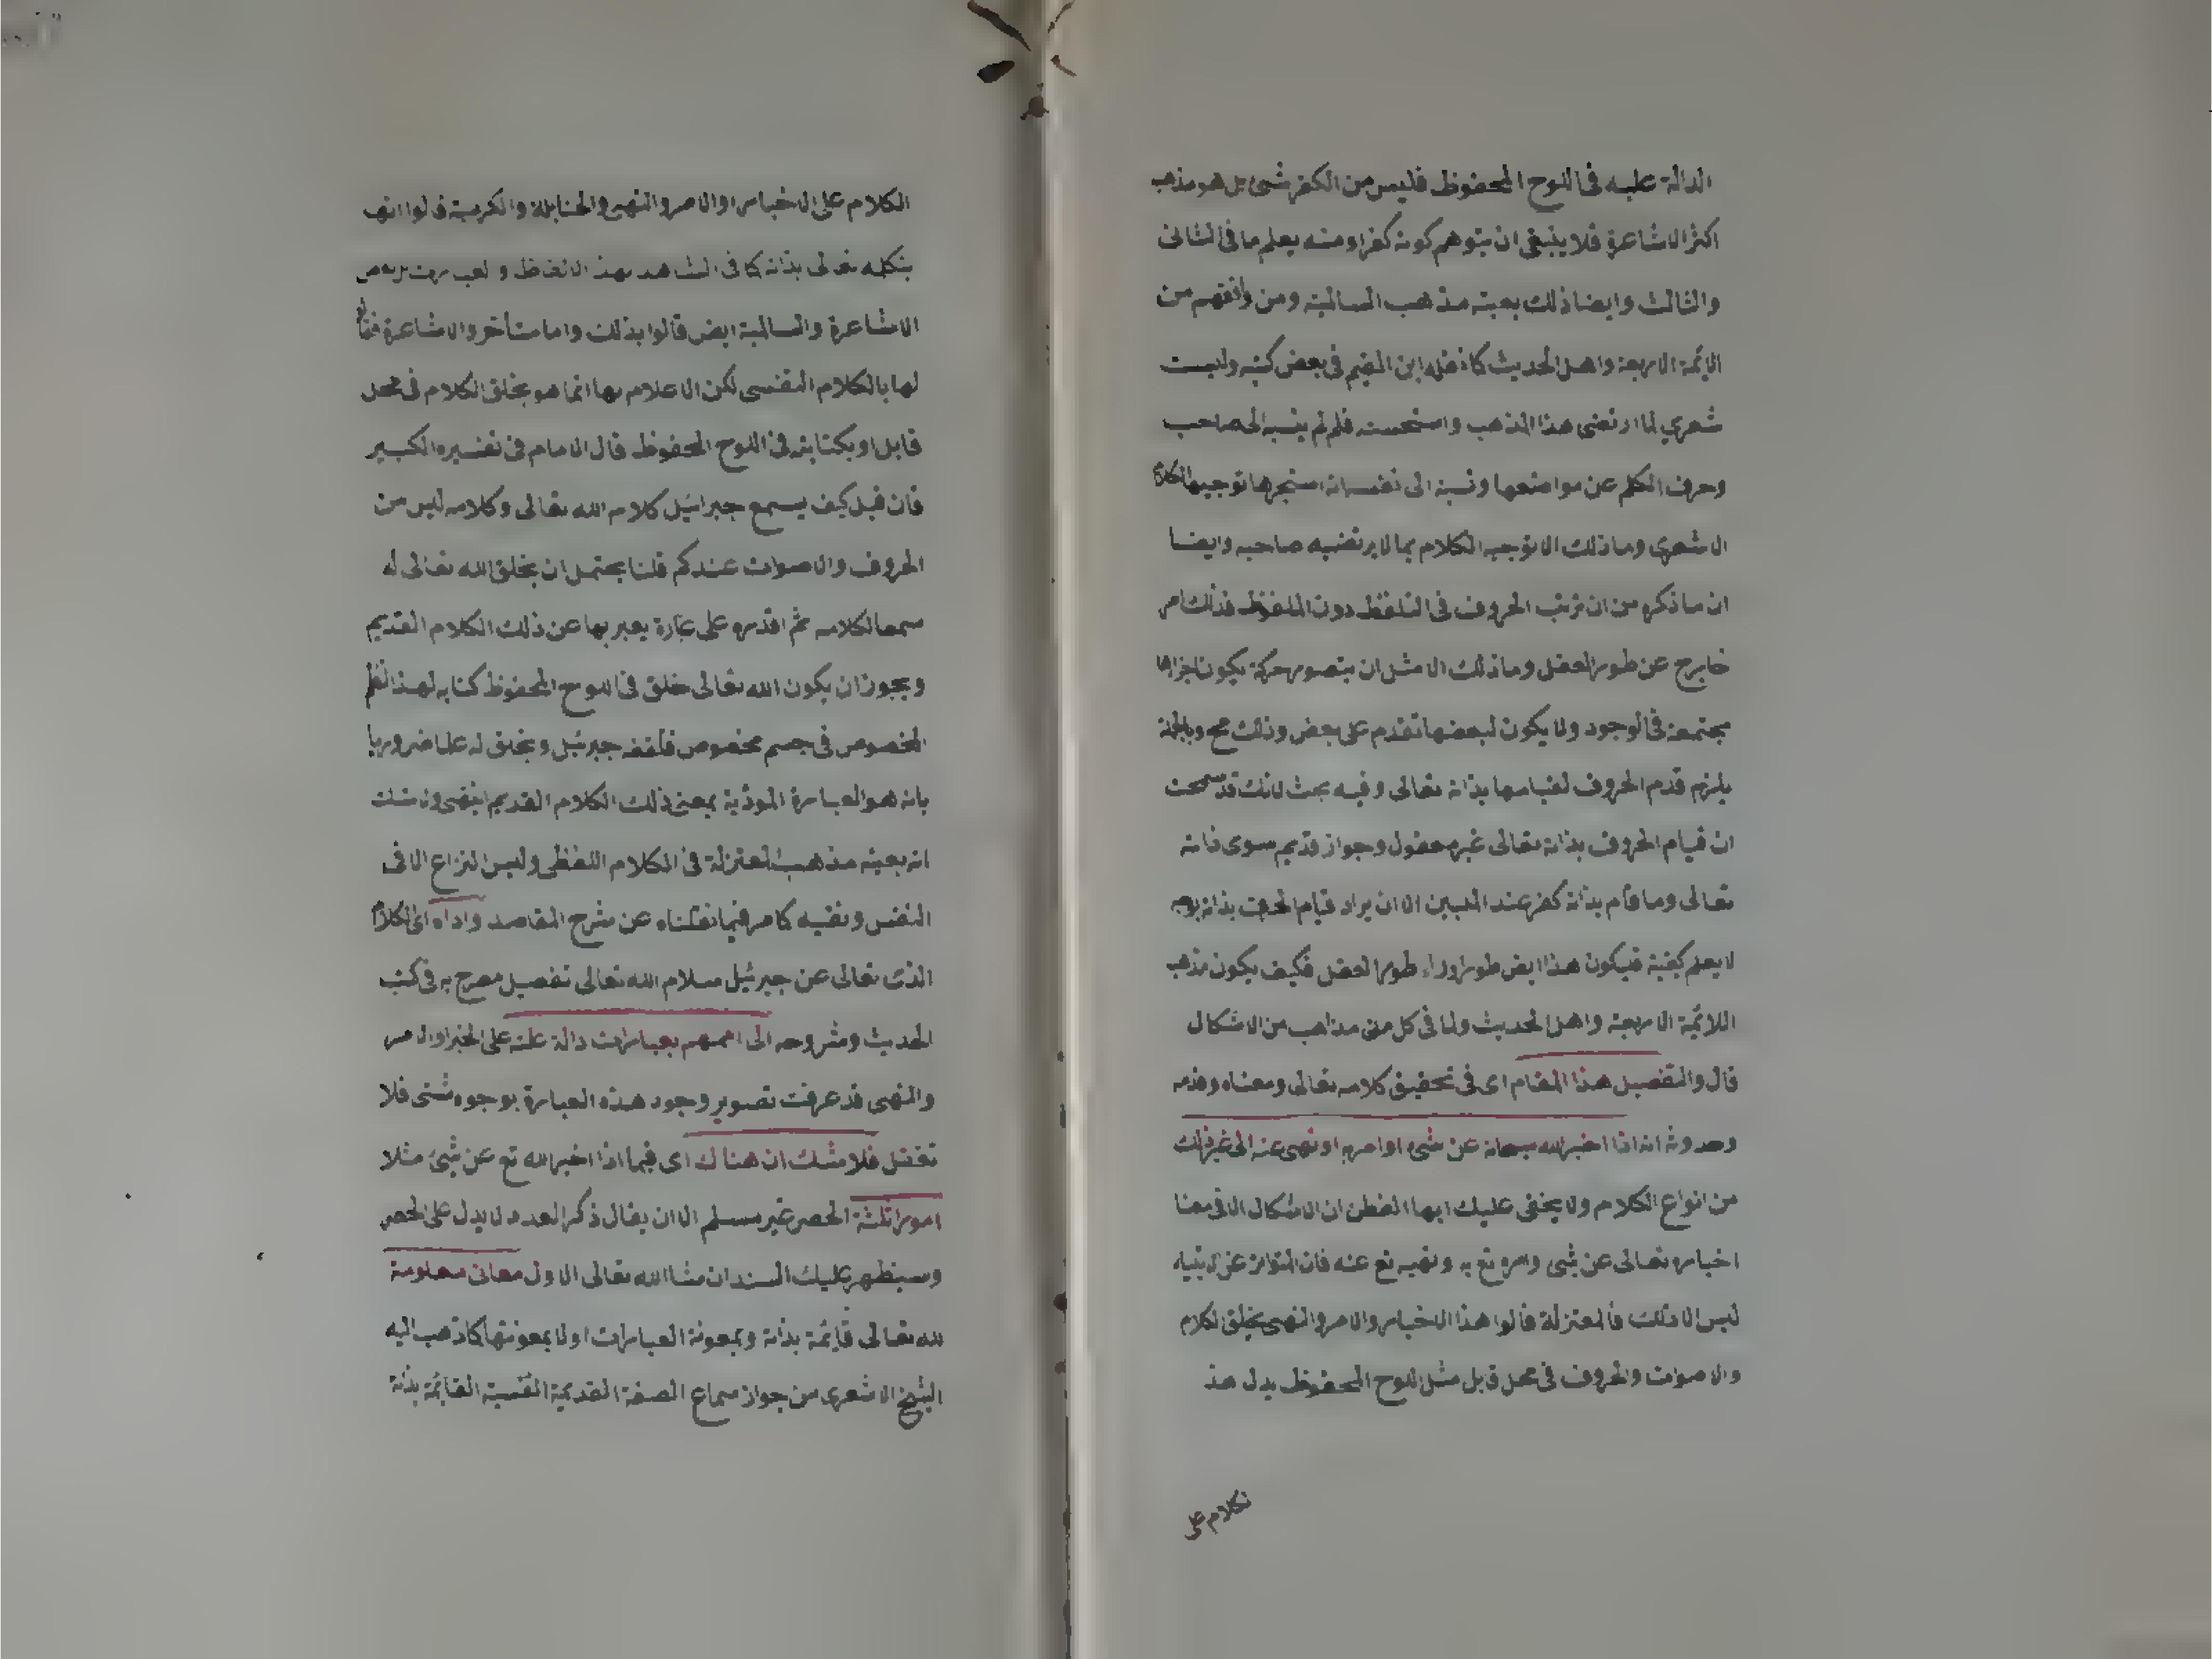 الدالة عليه في اللوح المحفوظ فليس من الكفر شئ بل هو مذهب
اكثر الاشاعرة فلا ينبغي ان يتوهم كونه كفرا ومنه يعلم ما في الثاني
والثالث وايضا ذلك بعينه مذهب السالمية ومن وافقهم من
الائمة الاربعة واهل الحديث كما نقله ابن القيم في بعض كتبه وليست
شعري لما ارتضى هذا المذهب واستحسنه فلم لم ينسبه الى صاحب
وحرف الكلم عن مواضعها ونسبه الى نفسه توجيها لكلام
الاشعري وما ذلك الا توجيه الكلام بما لا يرتضيه صاحبه وايضا
ان ما ذكره من ان ترتب الحروف في التلفظ دون الملفوظ فذلك امر
خارج عن طور العقل وما ذلك الا مثل ان يتصور حركة يكون اجزاها
مجتمعة في الوجود ولا يكون لبعضها تقدم على بعض وذلك مح وبالجملة
يلزم قدم الحروف لقيامها بذاته تعالى وفيه بحث لانك قد سمعت
ان قيام الحروف بذاته تعالى غير معقول وجواز قديم سوى ذاته
تعالى وما قام بذاته كفر عند المليين الا ان يراد قيام الحروف بذاته بوجه
لا يعلم كيفية فيكون هذا ايض طورا وراء طور العقل فكيف يكون مذهب
اللائمة الاربعة واهل الحديث ولما في كل من مذاهب من الاشكال
قال والتفصيل هذا المقام اى في تحقيق كلامه تعالى ومعناه وقدمه
وحدوثه انه اذا اخبر الله سبحانه عن شئ او امر به او نهى عنه الى غير ذلك
من انواع الكلام ولا يخفى عليك ايها الفطن ان الاشكال الا في معنا
اخباره تعالى عن شئ وامره تع به ونهيه تع عنه فان المتواتر عن انبياء
ليس الا ذلك فالمعتزلة قالوا هذا الاخبار والامر والنهي بخلق الكلام
والاصوات والحروف في محل قابل مثل اللوح المحفوظ يدل هذ
الكلام على
الكلام على الاخبار او الامر والنهي والحنابلة والكرمية قالوا انه
يتكلم تعالى بذاته كما في الشاهد بهذ الالفاظ و
الاشاعرة والسالمية ايض قالوا بذلك واما متأخروا الاشاعرة فقا
لها بالكلام النفسي لكن الاعلام بها انما هو بخلق الكلام في محل
قابل او بكتابته في اللوح المحفوظ قال الامام في تفسيره الكبير
فان قيل كيف يسمع جبرائيل كلام الله تعالى وكلامه ليس من
الحروف والاصوات عندكم قلنا يحتمل ان يخلق الله تعالى له
سمعا لكلامه ثم اقدره على عبارة يعبر بها عن ذلك الكلام القديم
ويجوز ان يكون الله تعالى خلق في اللوح المحفوظ كتابه لهذا النظم
المخصوص في جسم مخصوص فتلقفه جبرئيل ويخلق له علما ضروريا
بانه هو العبارة المودية بمعنى ذلك الكلام القديم انتهى
انه بعينه مذهب المعتزلة في الكلام اللفظي وليس النزاع الا في
النفس ونفيه كما مر فيما نقلناه عن شرح المقاصد واداه اى الكلام
الذى تعالى عن جبرئيل سلام الله تعالى تفصيل مصرح به في كتب
الحديث وشروحه الى اممهم بعبارات دالة علته على الخبر او الامر
والنهى قد عرفت تصوير وجود هذه العبارة بوجوه شتى فلا
تغفل فلا شك ان هناك اى فيما اذا اخبر الله تع عن شئ مثلا
امورا ثلثة الحصر غير مسلم الا ان يقال ذكر العدد لا يدل على الحصر
وسيظهر عليك السند ان شا الله تعالى الاول معانى معلومة
لله تعالى قائمة بذاته وبمعونة العبارات اولا بمعونتها كما ذهب اليه
الشيخ الاشعرى من جواز سماع الصفة القديمة النفسية القائمة بذاته